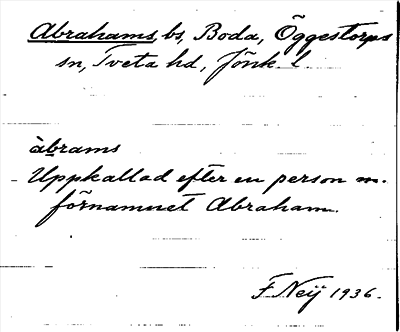 Abrahams, bs, Boda, Öggestorps
sn, Tveta hd, Jönk. l.
àbrams
Uppkallad efter en person m.
förnamnet Abraham.
F. Neij 1936.